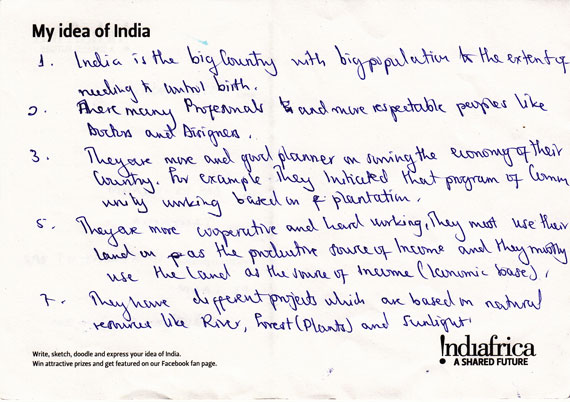 My idea of India
1. India is the big Country with big population to the extent of
needing to control birth.
2. There many Profesonals and more respectable peoples like
Doctors and Disigners.
3. They are more and good planner on surving the economy of their
Country. For example They Initiated that program of Comm
unity working based on plantation.
5. They are more cooperative and hard working, They most use their
land as the productive source of Income and they mostly
use the Land as the source of Income (Economic base).
7. They have different projects which are based on natural
resources like River, Forest (Plants) and Sunlight.
Write, sketch, doodle and express your idea of India.
Win attractive prizes and get featured on our Facebook fan page.
!ndiafrica
A SHARED FUTURE